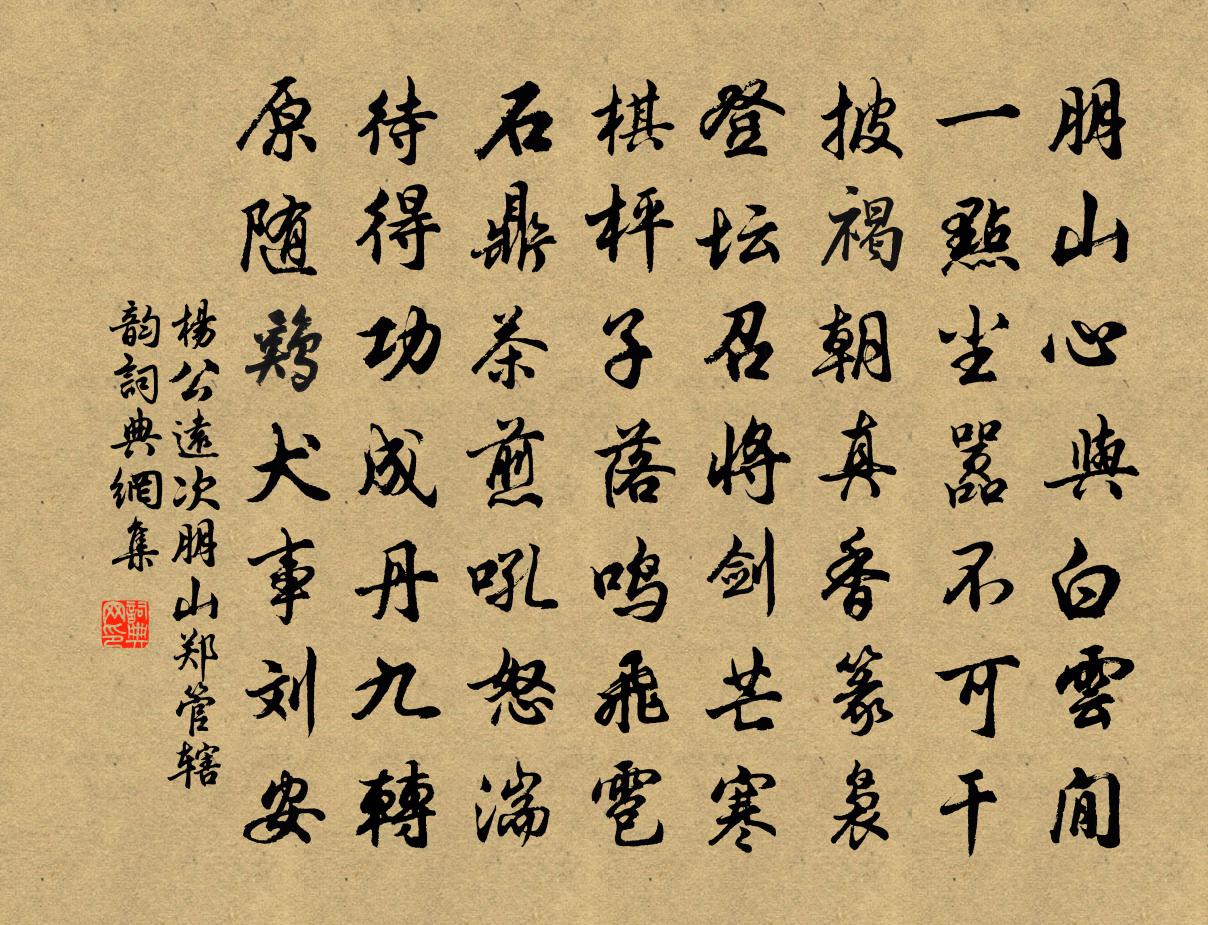 朋山心與白雲閒
一點尘嚣不可干
披褐朝真香篆袅
登坛召將剑芒寒
棋枰子落鸣飛雹
石鼎茶煎吼怒湍
待得功成丹九轉
原随鷄犬事刘安
楊公遠次朋山郑管辖
韵詞典網集
詞典
网印